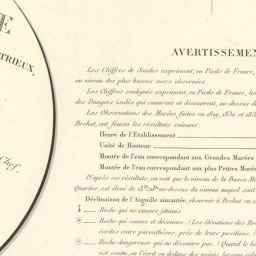 E
TRIEUX,
Chef,
AVERTISSEMEN
Les Chiffres de Sondes expriment, en Pieds de France,
au niveau des plus basses mers observées.
Les Chiffres soulignés expriment, en Pieds de France, les
des Dangers isolés qui couvrent et découvrent, au-dessus d
Les Observations des Marées, faites en 1819, 1831 et 183
Bréhat, ont fourni les résultats suivans:
Heure de l'Etablissement
Unité de Hauteur
Montée de l'eau correspondant aux Grandes Marées
Montée de l'eau correspondant aux plus Petites Marées
D'après ces résultats, on voit que le niveau de la Basse M
Quartier, est élevé de au-dessus du niveau auquel sont
Déclinaison de l'Aiguille aimantée, observée à Bréhat en 1
Roche qui ne couvre jamais
Roche qui couvre et découvre: Les élévations des Roc
cotées entre parenthèses, près de leurs positions. L
Roche dangereuse qui ne découvre pas: Quand le br
est connu, on l'écrit en dedans des points